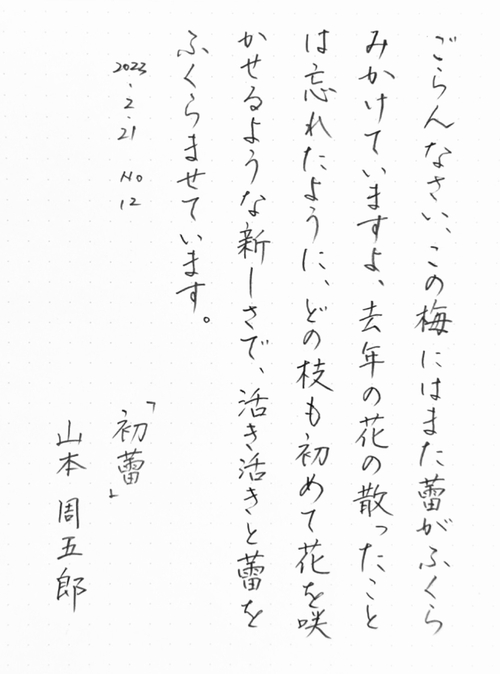 ごらんなさい、この梅にはまた蕾がふくら
みかけていますよ、去年の花の散ったこと
は忘れたように、どの枝も初めて花を咲
かせるような新しさで、活き活きと蕾を
ふくらませています。
2023.2.21 No12
「初蕾」
山本周五郎